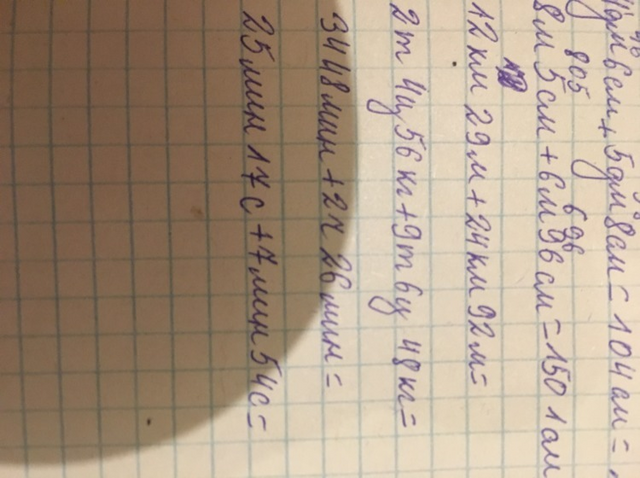 дм 6см + 5дм 8см = 104см =
805 696
8м 5см + 6м 96см = 1501см
12км 29м + 24км 92м =
2т 4ц 56кг + 9т 6ц 48кг =
3ч 48мин + 2ч 26мин =
25мин 17с + 7мин 54с =